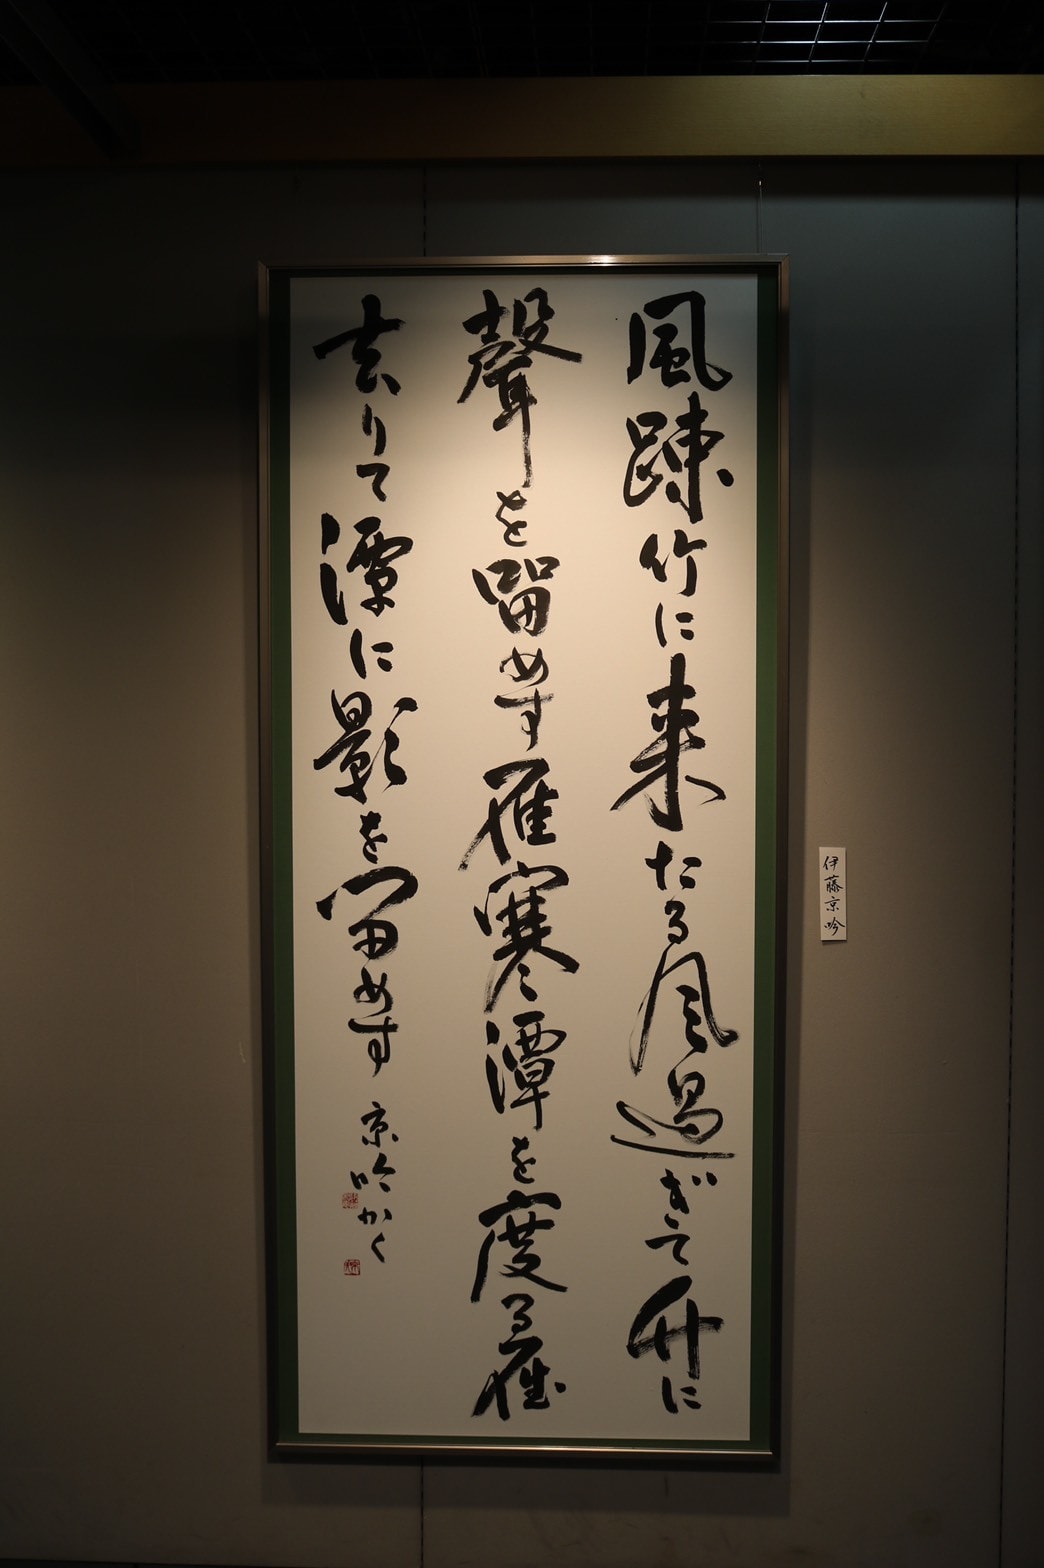 風疎竹に来たる風過ぎて竹に
聲を留めす雁寒潭を度る雁
去りて潭に影を留めす
京吟かく
伊藤京吟